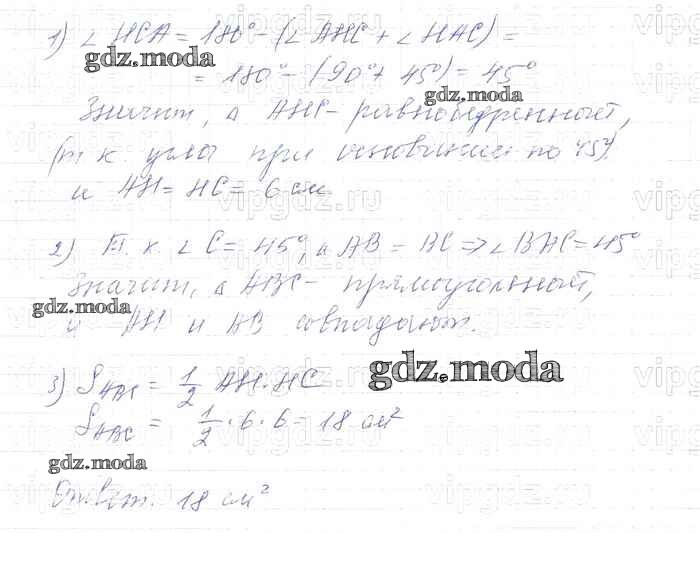 1) ∠ HCA = 180° - (∠ AHC + ∠ HAC) =
= 180° - (90° + 45°) = 45°
Значит, △ AHC - равнобедренный,
(т. к. углы при основании по 45°)
и AH = HC = 6 см
2) Т. к. ∠ C = 45°, а AB = BC => ∠ BAC = 45°
Значит, △ ABC - прямоугольный,
и AH и AB совпадают.
3) S ABC = 1/2 AH·HC
S ABC = 1/2 · 6 · 6 = 18 см²
Ответ. 18 см²
gdz.moda
gdz.moda
gdz.moda
gdz.moda
gdz.moda
vipgdz.ru